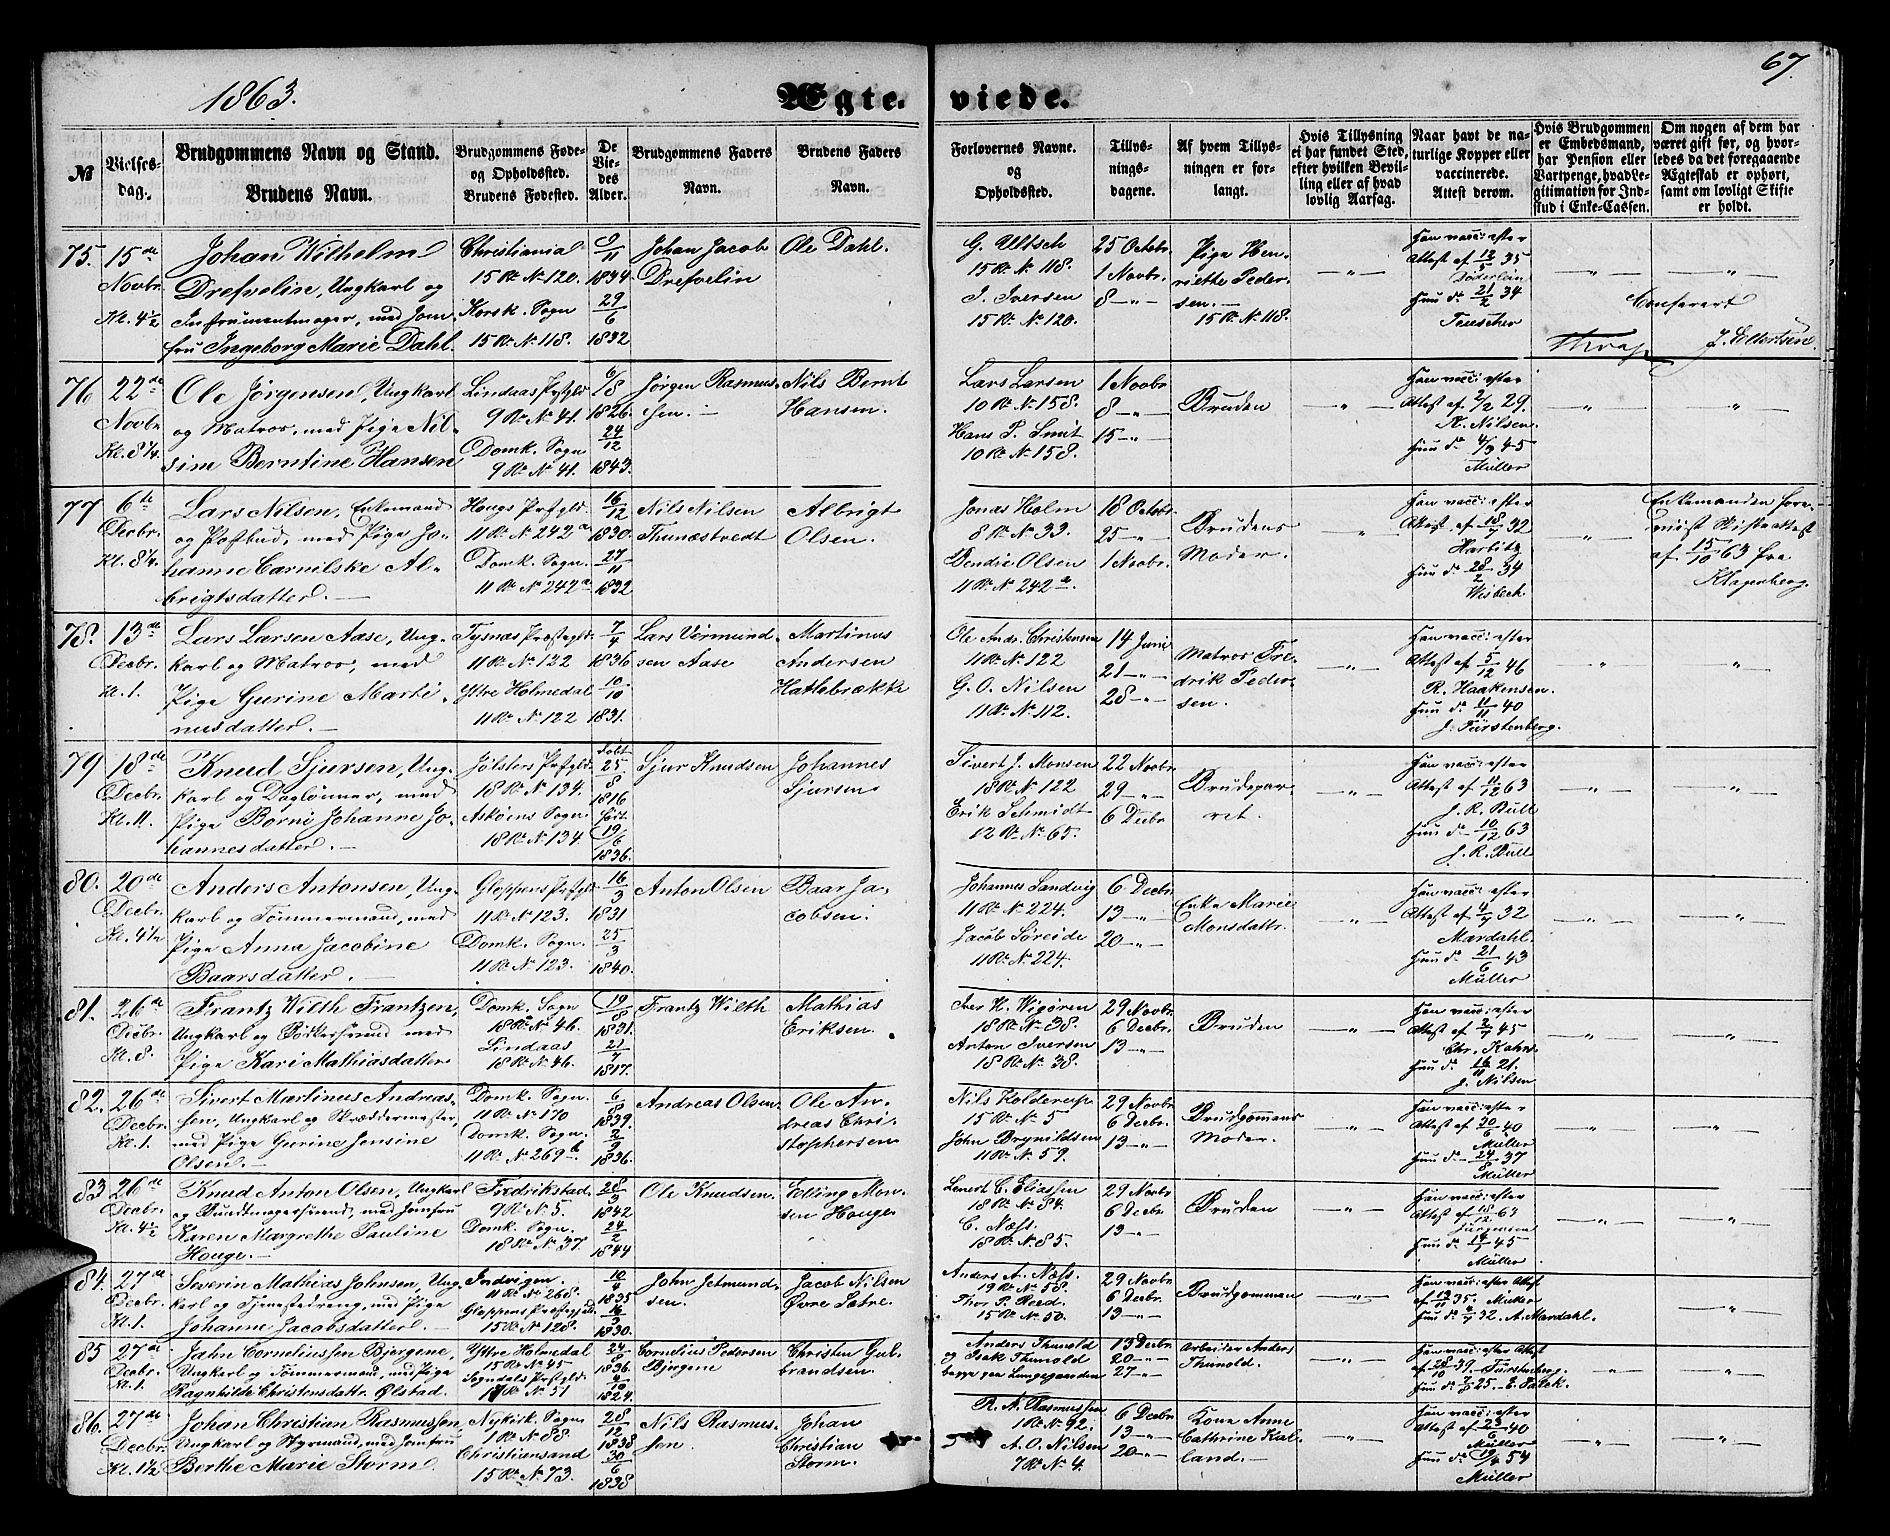 1863.
Ægte-
viede.
67.
№
Vielses-
dag.
Brudgommens Navn og Stand.
Brudens Navn.
Brudgommens Føde-
og Opholdssted.
Brudens Fødested.
De
Vie-
des
Alder.
Brudgommens Faders
Navn.
Brudens Faders
Navn.
Forlovernes Navne.
og
Opholdssted.
Tillys-
nings-
dagene.
Af hvem Tillys-
ningen er for-
langt.
Hvis Tillysning
ei har fundet Sted,
efter hvilken Bevil-
ling eller af hvad
lovlig Aarsag.
Naar havt de na-
turlige Kopper eller
vaccinerede.
Attest derom.
Hvis Brudgommen
er Embedsmand,
har Pension eller
Vartpenge, hvad Le-
gitimation for Ind-
skud i Enke-Cassen.
Om nogen af dem har
været gift før, og hvor-
ledes da det foregaaende
Ægteskab er ophørt,
samt om lovligt Skifte
er holdt.
75. 15de
Novbr.
Kl. 4½
Johan Wilhelm
Drefvelin, Ungkarl og
Instrumentmager, med Jom
fru Ingeborg Marie Dahl.
Christiania
15 R. N. 120.
Korsk. Sogn
15 R. N. 118.
9/11
1834
29/6
1832
Johan Jacob
Drefvelin
Ole Dahl.
G. Ultsch
15 R. N. 118.
J. Iversen
15 R. N. 120.
25 Octobr.
1 Novbr.
8 -„-
Pige Hen-
riette Peder-
sen.
15 R. N. 118.
-„-
Han vacc: efter
Attest af 12/5 35
Döderlein
Hun do 21/2 34
Tuescher
-„-
-„-
Confereret
J. Ellertsen
76 22de
Novbr
Kl. 8¼.
Ole Jørgensen, Ungkarl
og Matros, med Pige Nil-
sine Berntine Hansen
Lindaas Præstgld
9 R. N. 41.
Domk. Sogn
9 R. N. 41.
6/8
1826.
24/12
1843.
Jørgen Rasmus-
sen.
Nils Bernt
Hansen.
Lars Larsen
10 R. N. 158.
Hans P. Smit
10 R. N. 158.
1 Novbr
8 -„-
15 -„-
Bruden
-„-
Han vacc: efter
Attest af 2/2 29.
R. Nilsen.
Hun do 4/9 45
Müller
-„-
-„-
77 6de
Decbr.
Kl. 8¼.
Lars Nilsen, Enkemand
og Postbud, med Pige Jo-
hanne Carnilske Al-
brigtsdatter.
Hougs Præstgld.
11 R. N. 242 a
Domk. Sogn.
11 R. N. 242 a
16/12
1830.
27/11
1832
Nils Nilsen
Thunæstvedt
Albrigt
Olsen.
Jonas Holm
8 R. N. 33.
Bendix Olsen
11 R. N. 242 a.
18 Octobr.
25 -„-
1 Novbr.
Brudens
Moder.
-„-
Han vacc: efter
Attest af 18/7 32
Harbitz
Hun do 28/2 34
Wisbech
-„-
Enkemanden fore-
viist Skifteattest
af 15/10 63 fra
Klagenberg.
78. 13de
Decbr.
Kl. 1.
Lars Larsen Aase, Ung-
karl og Matros, med
Pige Gurine Marti-
nusdatter.
Tysnæs Præstegld.
11 R. N. 122
Yttre Holmedal
11 R. N. 122
7/4
1836
10/10
1831.
Lars Vermund-
sen Aase
Martinus
Andersen
Hattebrække
Ole Andr. Christensen
11 R. N. 122
G. O. Nilsen
11 R. N. 112.
14 Juni
21 -„-
28 -„-
Matros Fre-
drik Peder-
sen.
-„-
Han vacc: efter
Attest af 5/12 46
R. Haakensen.
Hun do 11/11 40
J. Fürstenberg.
-„-
-„-
79 18de
Decbr.
Kl. 11.
Knud Sjursen, Ung-
karl og Daglønner, med
Pige Børni Johanne Jo-
hannesdatter.
Jølsters Præstgld.
18 R. N. 134.
Askøens Sogn
18 R. N. 134.
Født
25/8
1816
Født
19/6
1836.
Sjur Knudsen
Johannes
Sjursen
Sivert J. Monsen
18 R. N. 122
Erik Schmidt
12 R. N. 65.
22 Novbr.
29 -„-
6 Decbr
Brudepar-
ret.
-„-
Han vacc: efter
Attest af 11/12 63
J. R. Bull
Hun do 10/12 63
J. R. Bull
-„-
-„-
80. 20de
Decbr.
Kl. 4½
Anders Antonsen, Ung-
karl og Tømmermand, med
Pige Anna Jacobine
Baarsdatter.
Gloppens Præstgld
11 R. N. 123.
Domk. Sogn.
11 R. N. 123.
16/3
1831
25/3
1840.
Anton Olsen
Baar Ja-
cobsen.
Johannes Sandvig
11 R. N. 224.
Jacob Søreide
11 R. N. 224.
6 Decbr.
13 -„-
20 -„-
Enke Marie
Monsdattr.
-„-
Han vacc: efter
Attest af 4/7 32
Mardahl.
Hun do 21/6 43
Müller
-„-
-„-
81. 26de
Decbr.
Kl. 8.
Frantz Wilth Frantzen,
Ungkarl og Bødkersvend med
Pige Kari Mathiasdatter
Domk. Sogn
18 R. N. 46.
Lindaas
18 R. N. 46.
19/8
1831.
21/7
1817.
Frantz Wilth
Mathias
Eriksen.
Iver H. Wigøren
18 R. N. 38.
Anton Iversen
18 R. N. 38.
29 Novbr.
6 Decbr.
13 -„-
Bruden
-„-
Han vacc: efter
Attest af 2/7 45
Chr. Kahrs.
Hun do 16/11 21.
J. Nilsen
-„-
-„-
82. 26de
Decbr.
Kl. 1.
Sivert Martinus Andreas-
sen, Ungkarl og Skræddermester,
med Pige Gurine Jensine
Olsen.
Domk. Sogn.
11 R. N. 170
Domk. Sogn.
11 R. N. 269 b
6/8
1839.
2/9
1836.
Andreas Olsen.
Ole An-
dreas Chri-
stophersen
Nils Holderup
15 R. N. 5
John Brynildsen
11 R. N. 59.
29 Novbr.
6 Decbr.
13 -„-
Brudgommens
Moder.
-„-
Han vacc: efter
Attest af 30/6 40
Müller
Hun do 24/8 37
Müller
-„-
-„-
83 26de
Decbr.
Kl. 4½
Knud Anton Olsen, Ungkarl
og Buntmagersvend, med Jomfru
Karen Margrethe Pauline
Houge.
Fredrikstad.
9 R. N. 5.
Domk. Sogn.
18 R. N. 37.
28/3
1842
24/2
1844
Ole Knudsen.
Elling Mon-
sen Houge
Lenert C. Eliassen
18 R. N. 84.
C. Næss.
18 R. N. 85.
29 Novbr.
6 Decbr
13 -„-
Bruden
-„-
Han vacc: efter
Attest af 18/12 63
Jürgensen
Hun do 14/7 45
Müller.
-„-
-„-
84. 27de
Decbr.
Kl. 1.
Severin Mathias Johnsen, Ung
karl og Tjenestedreng, med Pige
Johanne Jacobsdatter.
Indvigen.
11 R. N. 268.
Gloppens Præstegjld.
15 R. N. 128.
10/4
1835
16/3
1830.
John Jetmund-
sen.
Jacob Nilsen
Øvre Sætre.
Anders A. Næss.
19 R. N. 58.
Thor P. Reed.
15 R. N. 50.
29 Novbr.
6 Decbr.
13 -„-
Brudgommen
-„-
Han vacc: efter Attest
af 13/11 35. Müller
Hun do 4/7 32. A. Mardahl.
-„-
85 27de
Decbr.
Kl. 1.
Jahn Corneliussen Bjergene,
Ungkarl og Tømmermand, med Pige
Ragnhilde Christensdattr. Ølstad.
Yttre Holmedal
15 R. N. 45
Sogndals Præstgld.
17 R. N. 51
24/8
1836.
4/10
1824.
Cornelius Pedersen
Bjergene
Christen Gul-
brandsen.
Anders Thunold
og Isak Thunold
begge paa Lungegaarden
13 Decbr.
20 -„-
27 -„-
Arbeider Anders
Thunold.
-„-
Han vacc: efter Attest
af 28/10 39. Fürstenberg.
Hun do 7/8 25. E. Falck.
-„-
-„-
86. 27de
Decbr.
Kl. 1½
Johan Christian Rasmussen,
Ungkarl og Styrmand, med Jomfru
Berthe Marie Storm.
Nykirk. Sogn
1 R. N. 88.
Christiansand
15 R. N. 73.
28/12
1838
30/6
1838
Nils Rasmus-
sen.
Johan
Christian
Storm.
R. N. Rasmussen
1 R. N. 92.
A. O. Nilsen
7 R. N. 4.
6 Decbr.
13 -„-
20 -„-
Kone Anne
Cathrine Kal-
land.
-„-
Han vacc: efter
Attest af 23/6 40
Müller
Hun do 19/4 54
Müller
-„-
-„-